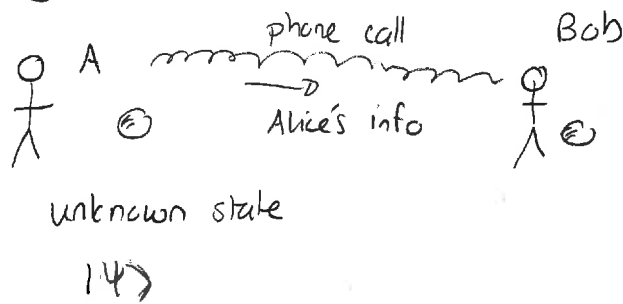 phone call
A
Bob
Alice's info
unknown state
|ψ⟩